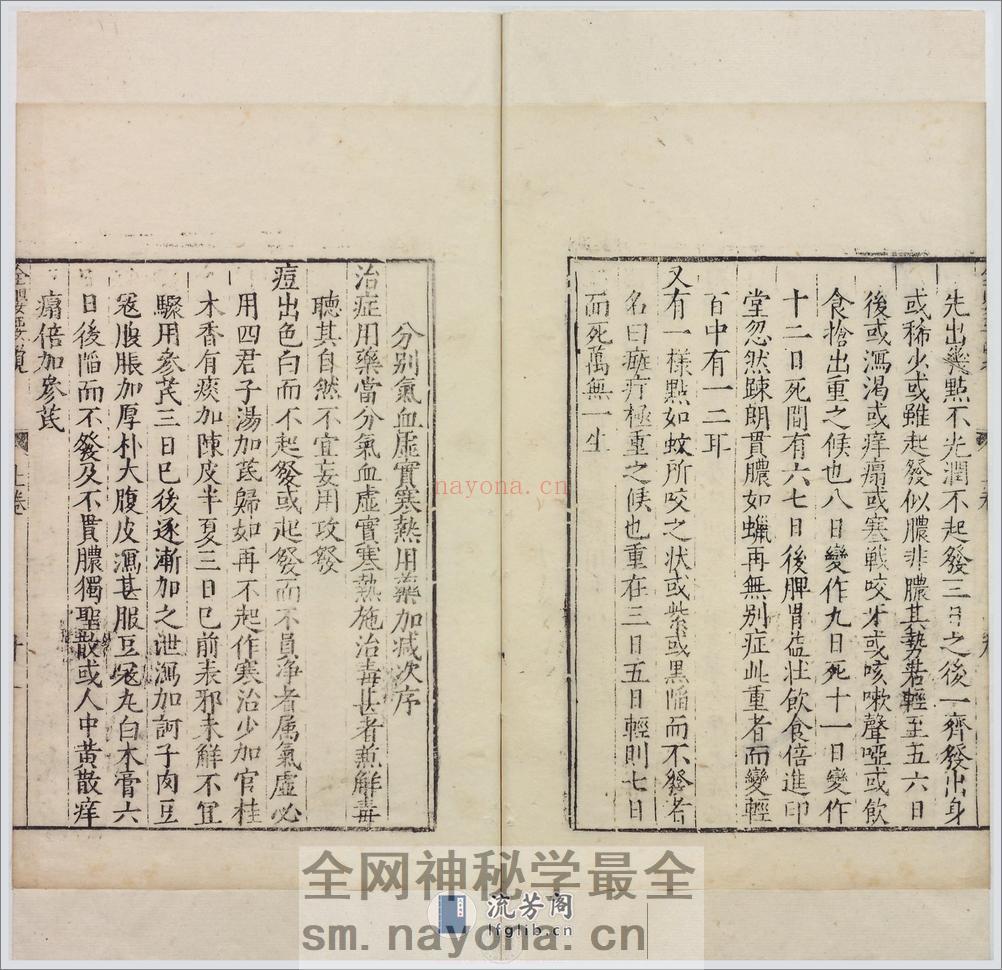 先出幾點不光潤不起發三日之後一齊發出身
或稀少或雖起發似膿非膿其勢若輕至五六日
後或瀉渴或痒瘑或寒戰咬牙或咳嗽聲啞或飲
食搶出重之候也八日變作九日死十一日變作
十二日死間有六七日後脾胃益壯飲食倍進印
堂忽然踈朗貫膿如蠟再無別症此重者而變輕
百中有一二耳
又有一樣點如蚊所咬之状或紫或黑陷而不發者
名曰疔極重之候也重在三日五日輕則七日
而死萬無一生
分別氣血虛實寒熱用藥加减次序
治症用藥當分氣血虛實寒熱施治毒甚者兼解毒
聽其自然不宜妄用攻發
痘出色白而不起發或起發而不員淨者属氣虛必
用四君子湯加芪歸如再不起作寒治少加官桂
木香有痰加陳皮半夏三日巳前表邪未解不宜
驟用參芪三日巳後逐漸加之泄瀉加訶子肉豆
蔻腹脹加厚朴大腹皮瀉甚服豆蔻丸白术膏六
日後陷而不發及不貫膿獨聖散或人中黃散痒
瘑倍加參芪
上卷
nayona.cn
全网神秘学最全
流芳阁
lfglib.cn
sm.nayona.cn